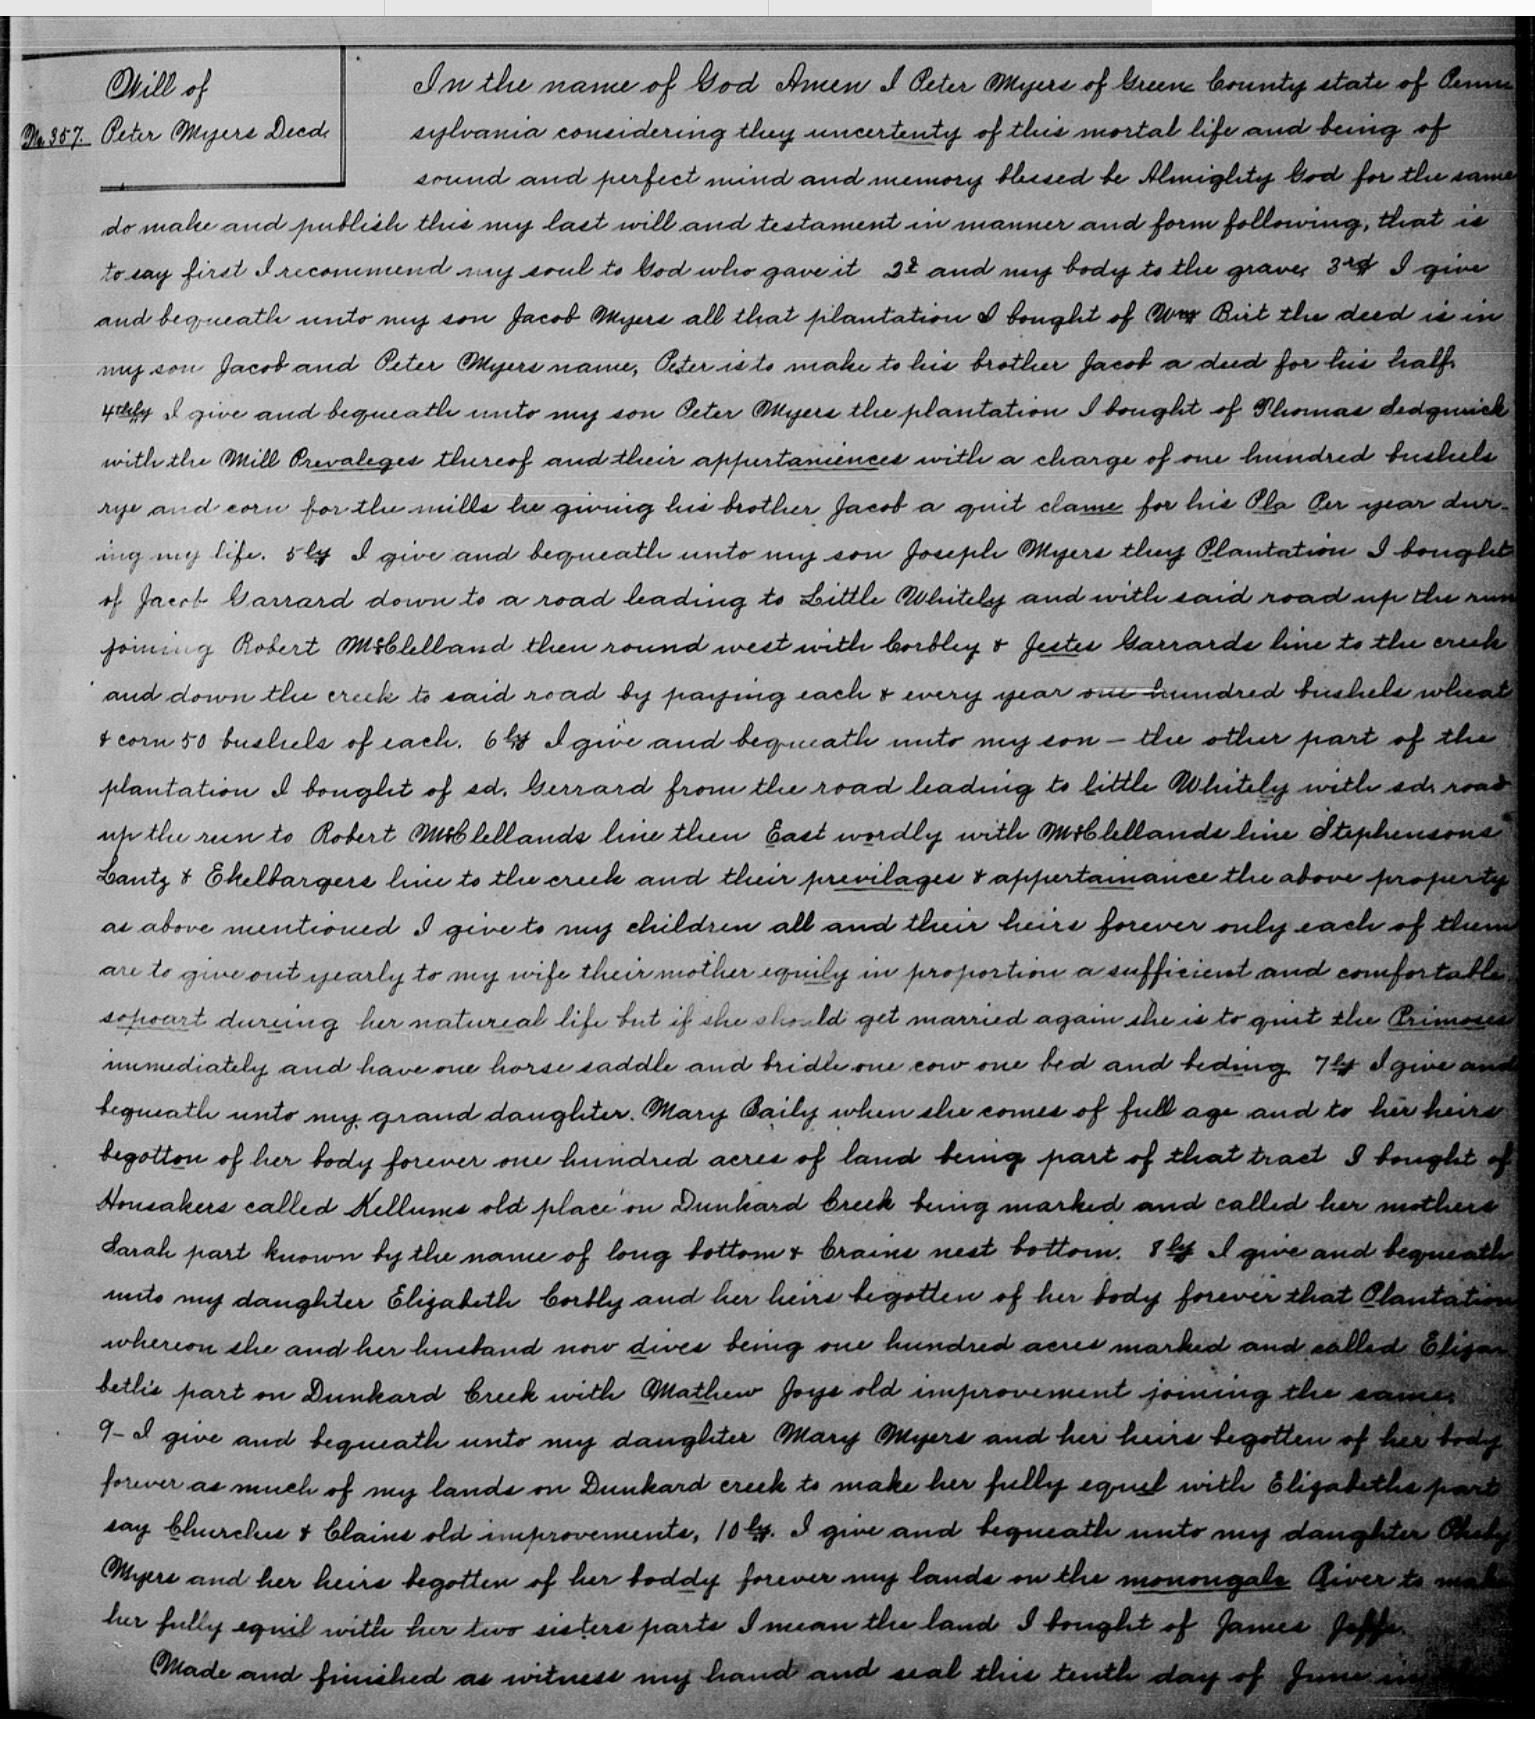 Will of
No. 357. Peter Myers Decd.
In the name of God Amen I Peter Myers of Green County state of Penn
sylvania considering they uncertenty of this mortal life and being of
sound and perfect mind and memory blessed be Almighty God for the same
do make and publish this my last will and testament in manner and form following, that is
to say first I recommend my soul to God who gave it 2d and my body to the grave, 3rd I give
and bequeath unto my son Jacob Myers all that plantation I bought of Wm Birt the deed is in
my son Jacob and Peter Myers name, Peter is to make to his brother Jacob a deed for his half.
4thly I give and bequeath unto my son Peter Myers the plantation I bought of Thomas Sedgwick
with the Mill Prevaleges thereof and their appertaniences with a charge of one hundred bushels
rye and corn for the mills he giving his brother Jacob a quit clame for his Pla Per year dur-
ing my life. 5ly I give and bequeath unto my son Joseph Myers they Plantation I bought
of Jacob Garrard down to a road leading to Little Whitely and with said road up the run
joining Robert McClelland then round west with Corbley & Jestes Garrards line to the creek
and down the creek to said road by paying each & every year one hundred bushels wheat
& corn 50 bushels of each. 6ly I give and bequeath unto my son - the other part of the
plantation I bought of sd. Gerrard from the road leading to little Whitely with sd. road
up the run to Robert McClellands line then East wordly with McClellands line Stephensons
Lantz & Ekelbargers line to the creek and their previlages & appertainance the above property
as above mentioned I give to my children all and their heirs forever only each of them
are to give out yearly to my wife their mother equily in proportion a sufficient and comfortable
sopoart dureing her natureal life but if she should get married again she is to quit the Primoses
immediately and have one horse saddle and bridle one cow one bed and beding 7ly I give and
bequeath unto my grand daughter Mary Baily when she comes of full age and to her heirs
begotton of her body forever one hundred acres of land being part of that tract I bought of
Housakers called Kellums old place on Dunkard Creek being marked and called her mothers
Sarah part known by the name of long bottom & Crains nest bottom. 8ly I give and bequeath
unto my daughter Elizabeth Corbly and her heirs begotten of her body forever that Plantation
whereon she and her husband now dives being one hundred acres marked and called Eliza
beth's part on Dunkard Creek with Mathew Joys old improvement joining the same.
9- I give and bequeath unto my daughter Mary Myers and her heirs begotten of her body
forever as much of my lands on Dunkard creek to make her fully equel with Elizabeths part
say Churches & Clains old improvements, 10ly. I give and bequeath unto my daughter
Myers and her heirs begotten of her boddy forever my lands on the monongale River to make
her fully equil with her two sisters parts I mean the land I bought of James
Made and finished as witness my hand and seal this tenth day of June in